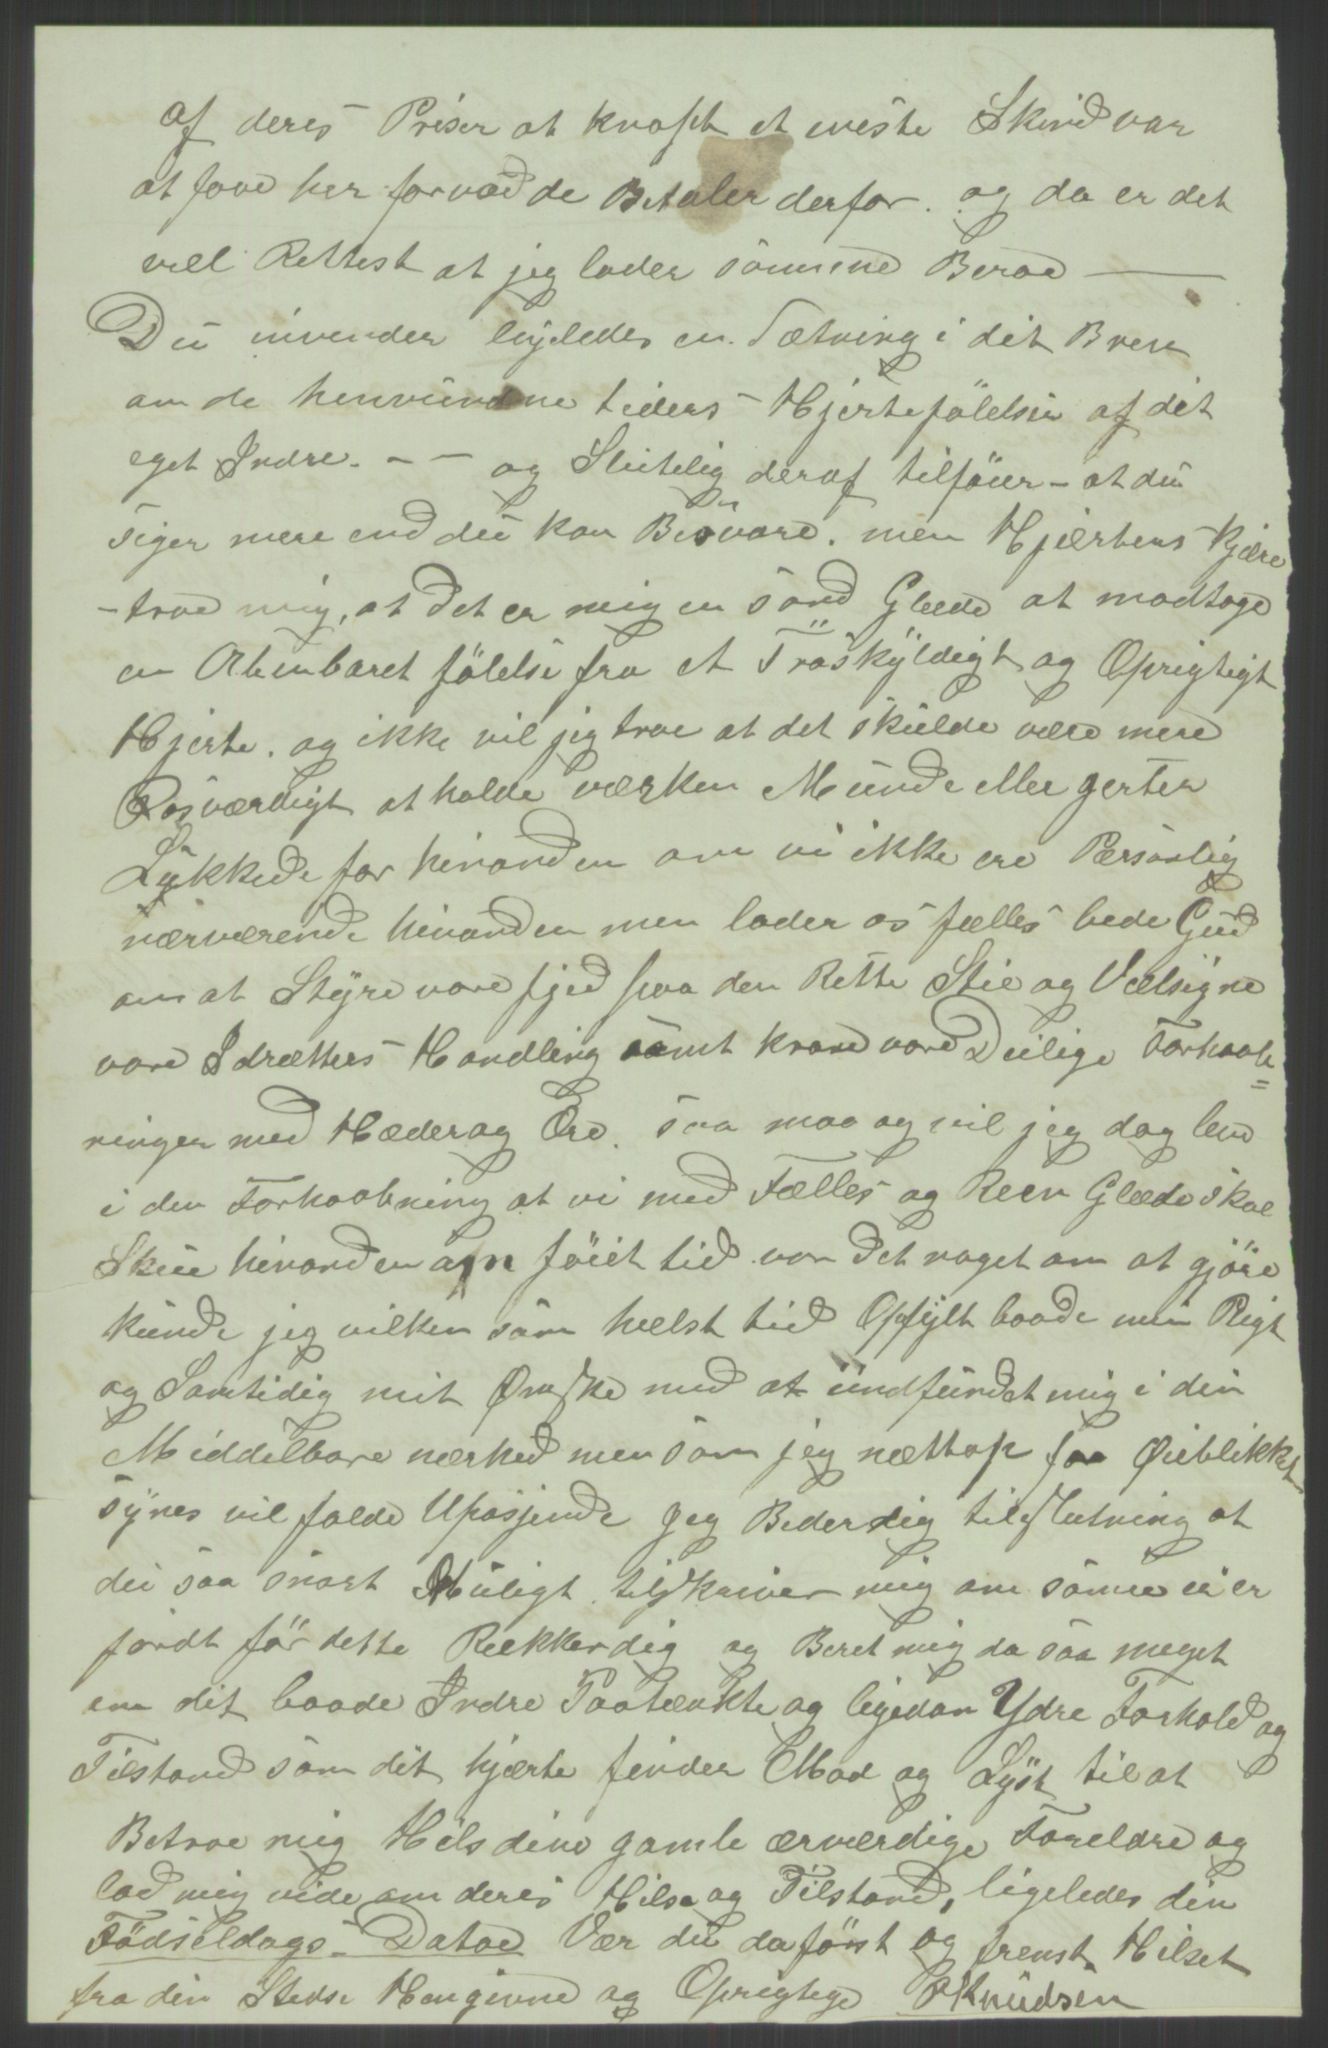 af deres Priser at knapt et eneste Skind var
at faae her forvad de Betaler derfor. og da er det
vell Rettest at jeg lader samme Beroe —
Du invender ligeledes en Sætning i dit Brev
om de henvundne tiders Hjertefölelser af dit
eget Indre. – – og Slutelig deraf tilföier – at du
siger mere end du kan Besvare. men Hjærtens Kjære
– troe mig, at det er mig en sand Glæde at modtage
en Abenbaret fölelse fra et Troskyldigt og Oprigtigt
Hjerte. og ikke vil jeg troe at det skulde være mere
Rosværdigt at holde værken Munde eller gerter
Lukkede for hinanden om vi ikke ere Personlig
nærværende hinanden men lader os fælles bede Gud
om at Styre vore fjed paa den Rette Stie og Velsigne
vore Idrætters Handling samt krone vore Deilige Forhaab=
ninger med Hæder og Ære. saa maa og vil jeg dog leve
i den Forhaabning at vi med Fælles og Reen Glæde skal
Skue hinanden om föiet tid var det noget om at gjöre
kunde jeg vilken som helst tid Opfylt baade min Pligt
og Samtidig mit Ønske med at undfundet mig i din
Middelbare nærhed men som jeg nættop for Øieblikket
synes vil falde Upasjende Jeg Beder dig til Slutning at
du saa snart Muligt tilskriver mig om samme ei er
fordt för dette Rækker dig og Beret mig da saa meget
om dit baade Indre Paatænkte og ligedan Ydre Forhold og
Tilstand som dit hjærte finder Mod og Lyst til at
Betroe mig Hils dine gamle ærværdige Foreldre og
lad mig vide om deres Hilse og Tilstand, ligeledes din
Födseldags-Datoe Vær du da först og fremst Hilset
fra din Stedse Hengivne og Oprigtige PKnudsen